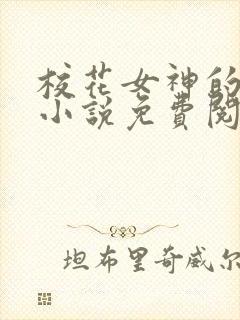 校花女神的
小说免费阅
坦布里奇威尔